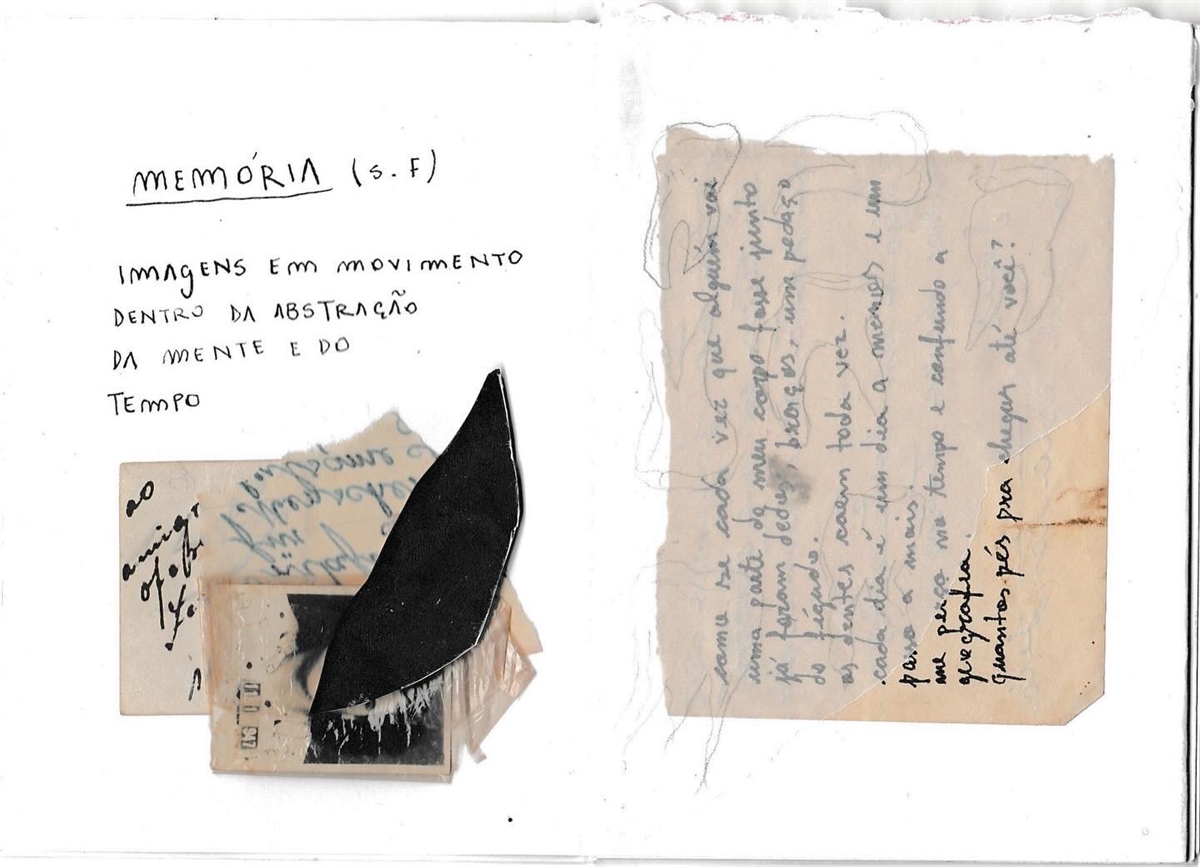 MEMÓRIA (S.F)
IMAGENS EM MOVIMENTO
DENTRO DA ABSTRAÇÃO
DA MENTE E DO
TEMPO
ao
amigo
como se cada vez que alguém vai
uma parte do meu corpo fosse junto
já foram dedos, braços, um pedaço
do fígado.
os dentes caem toda vez.
cada dia é um dia a menos e um
passo a mais
me perco no tempo e confundo a
geografia.
quantos pés pra chegar até você?